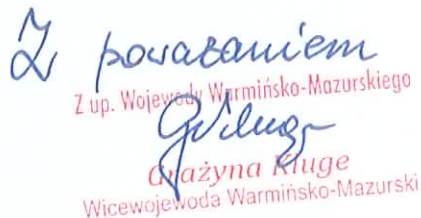 Z poważaniem
Z up. Wojewody Warmińsko-Mazurskiego
Grażyna Kluge
Wicewojewoda Warmińsko-Mazurski